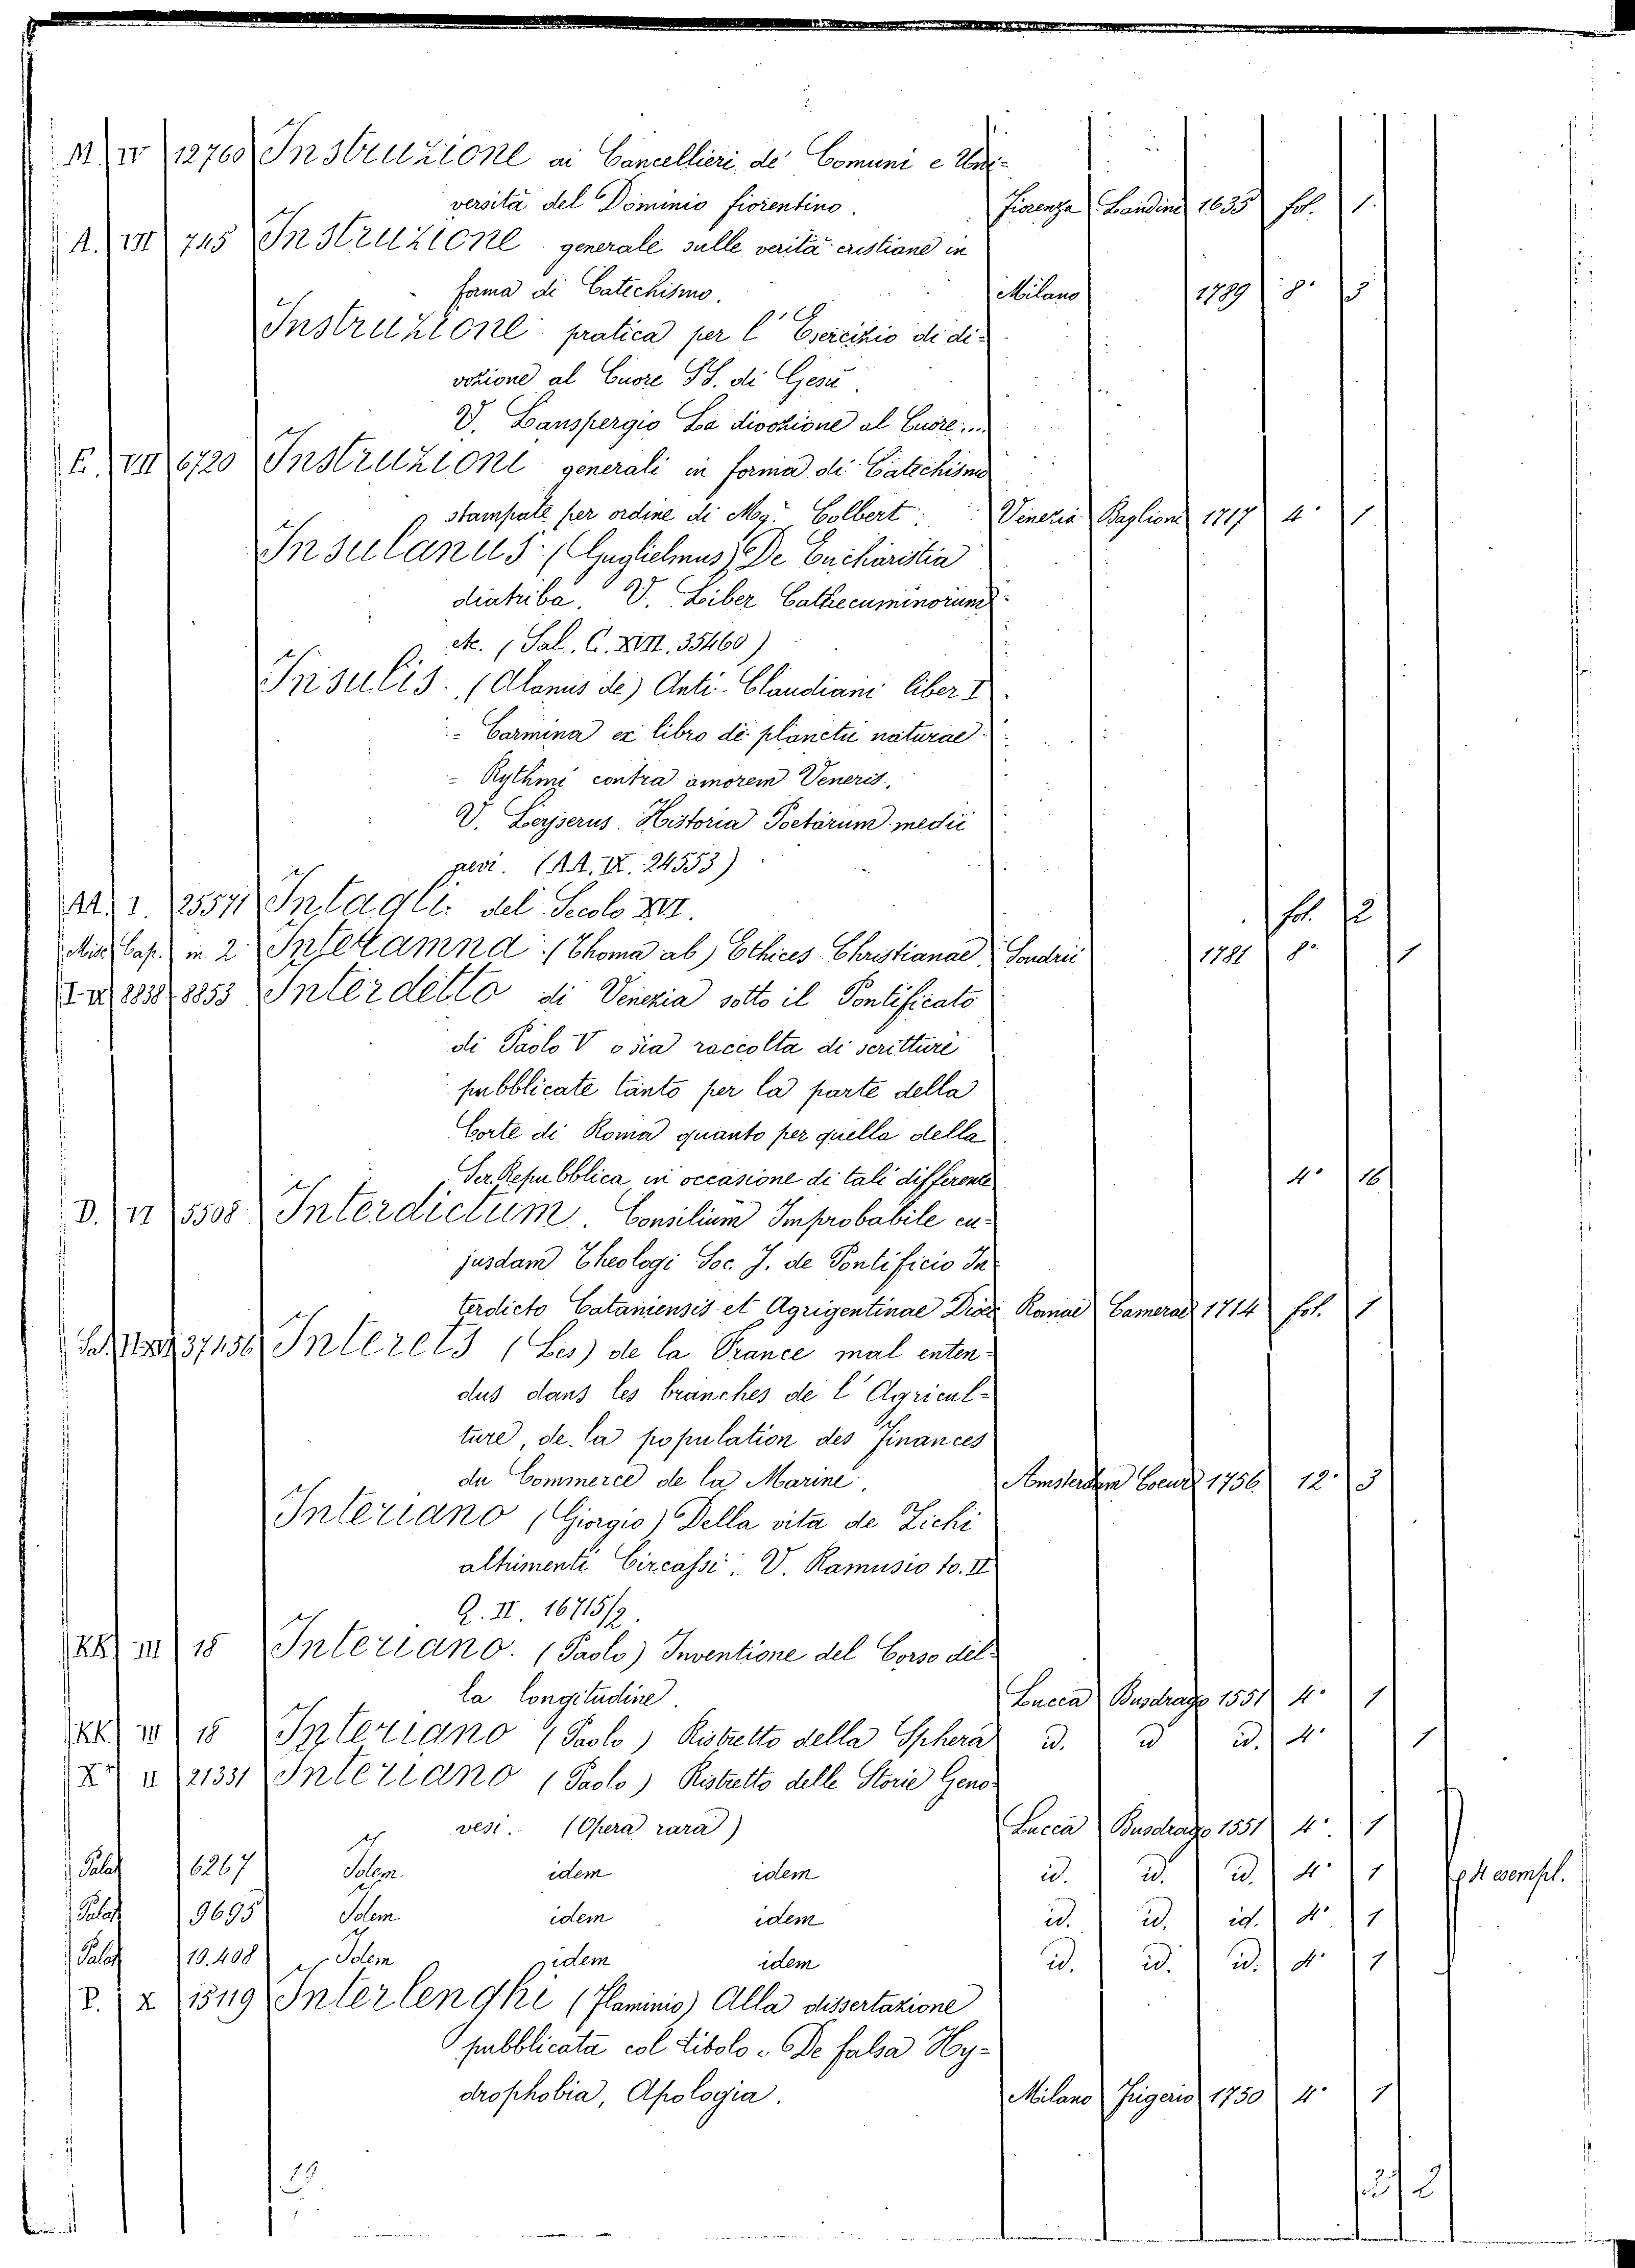 M. IV 12760 Instruzione ai Cancellieri de' Comuni e Uni-
versità del Dominio fiorentino. Fiorenza Landini 1635 fol. 1.
A. VII 745 Instruzione generale sulle verità cristiane in
forma di Catechismo. Milano 1789 8° 3
Instruzione pratica per l'Esercizio di di-
vozione al Cuore SS. di Gesù.
V. Lanspergio La divozione al Cuore....
E. VII 6720 Instruzioni generali in forma di Catechismo
stampate per ordine di Mgr. Colbert. Venezia Baglioni 1717 4° 1
Insulanus (Guglielmus) De Eucharistia
diatriba. V. Liber Cathecuminorum
etc. (Sal. C. XIII. 35460)
Insulis. (Alanus de) Anti-Claudiani liber I
- Carmina ex libro de planctu naturae
- Rythmi contra amorem Veneris.
V. Leyserus. Historia Poetarum medii
aevi. (AA. IX. 24553)
AA. I. 25571 Intagli del Secolo XVI. fol. 2
Misc. Cap. m. 2 Interamna (Thoma ab) Ethices Christianae Sondrii 1781 8° 1
I II 8838 8853 Interdetto di Venezia sotto il Pontificato
di Paolo V o sia raccolta di scritture
pubblicate tanto per la parte della
Corte di Roma quanto per quella della
Ser. Repubblica in occasione di tali differenze 4° 16
D. VI 5508 Interdictum. Consilium Improbabile cu-
jusdam Theologi Soc. J. de Pontificio In-
terdicto Cataniensis et Agrigentinae Dioc. Romae Camerae 1714 fol. 1
37456 Interets (Les) de la France mal enten-
dus dans les branches de l'Agricul-
ture, de la population des Finances
du Commerce de la Marine. Amsterdam Coeur 1756 12° 3
Interiano (Giorgio) Della vita de Zichi
altrimenti Circassi. V. Ramusio to. II
Q. II. 16715/2.
KK III 18 Interiano. (Paolo) Inventione del Corso del-
la longitudine. Lucca Busdrago 1551 4° 1
KK III 18 Interiano (Paolo) Ristretto della Sphera id. id id. 4° 1
X II 21331 Interiano (Paolo) Ristretto delle Storie Geno-
vesi. (Opera rara) Lucca Busdrago 1551 4°. 1
Palat 6267 Idem idem idem id. id. id. 4° 1 4 esempl.
Palat 9695 Idem idem idem id. id. id. 4° 1
Palat 10.408 Idem idem idem id. id. id. 4° 1
P. X 15119 Interlenghi (Flaminio) Alla dissertazione
pubblicata col titolo - De falsa Hy-
drophobia, Apologia. Milano Frigerio 1750 4° 1